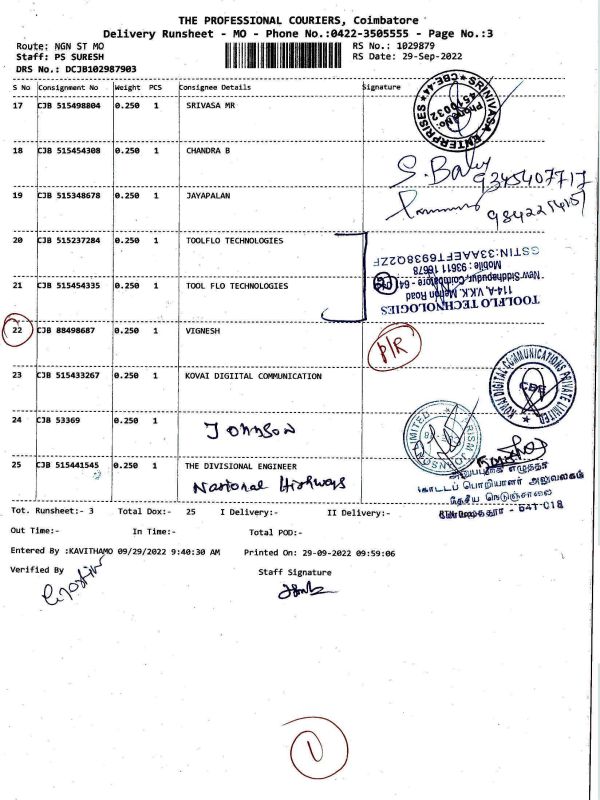 THE PROFESSIONAL COURIERS, Coimbatore
Delivery Runsheet - MO - Phone No.:0422-3505555 - Page No.:3
Route: NGN ST MO RS No.: 1029879
Staff: PS SURESH RS Date: 29-Sep-2022
DRS No.: DCJB102987903
S No Consignment No Weight PCS Consignee Details Signature
17 CJB 515498804 0.250 1 SRIVASA MR
SRINIVASA ENTERPRISES ★ CBE-44 ★
Phone No: 4510032
18 CJB 515454308 0.250 1 CHANDRA B
S. Baby 9345407717
19 CJB 515348678 0.250 1 JAYAPALAN
20 CJB 515237284 0.250 1 TOOLFLO TECHNOLOGIES
21 CJB 515454335 0.250 1 TOOL FLO TECHNOLOGIES
TOOLFLO TECHNOLOGIES
114-A, V.K.K. Menon Road
New Siddhapudur, Coimbatore - 641
Mobile : 93611 16678
GSTIN:33AAEFT6938Q2ZF
22 CJB 88498687 0.250 1 VIGNESH
P/R
23 CJB 515433267 0.250 1 KOVAI DIGIITAL COMMUNICATION
KOVAI DIGITAL COMMUNICATIONS PRIVATE LIMITED ★
CBE
24 CJB 53369 0.250 1 JOHNSON
PRISM JOHNSON LIMITED
25 CJB 515441545 0.250 1 THE DIVISIONAL ENGINEER
National Highways
கோட்டப் பொறியாளர் அலுவலகம்
தேசிய நெடுஞ்சாலை
641-018
Tot. Runsheet:- 3 Total Dox:- 25 I Delivery:- II Delivery:-
Out Time:- In Time:- Total POD:-
Entered By :KAVITHAMO 09/29/2022 9:40:30 AM Printed On: 29-09-2022 09:59:06
Verified By Staff Signature
1